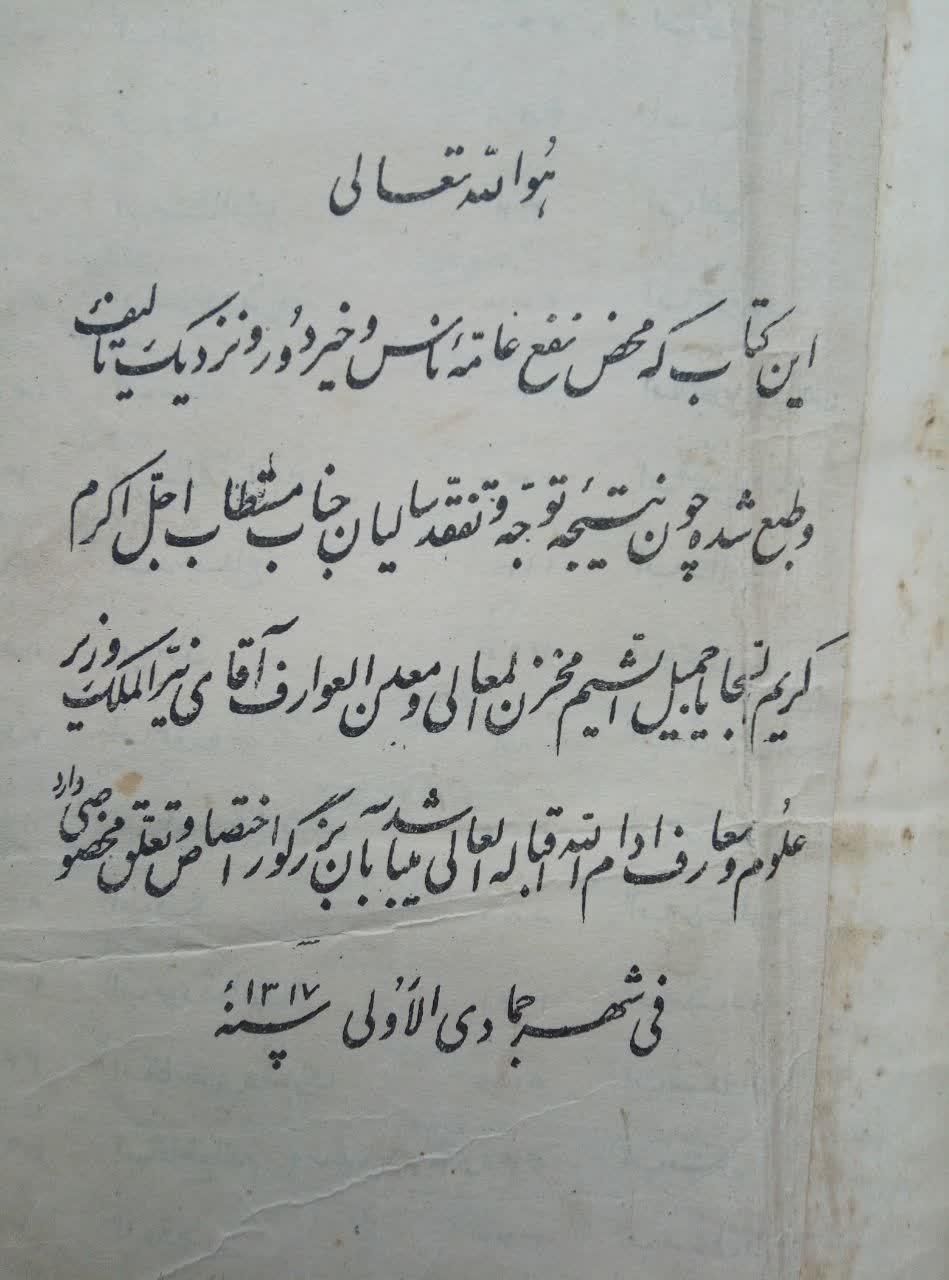 هُوَ الله تعالی
این کتاب که محض نفع عامّهٔ ناس و خیر دور و نزدیک تألیف
و طبع شده چون نتیجهٔ توجّه و تفقّد سالیان جناب مستطاب اجلّ اکرم
کریم السّجایا جمیل الشّیم مخزن المعالی و معدن العوارف آقای نیّرالملک وزیر
علوم و معارف ادام الله اقباله العالی میباشد بآن بزرگوار اختصاص و تعلّق مخصوصی دارد
فی شهر جمادی الاولی سنهٔ ۱۳۱۷